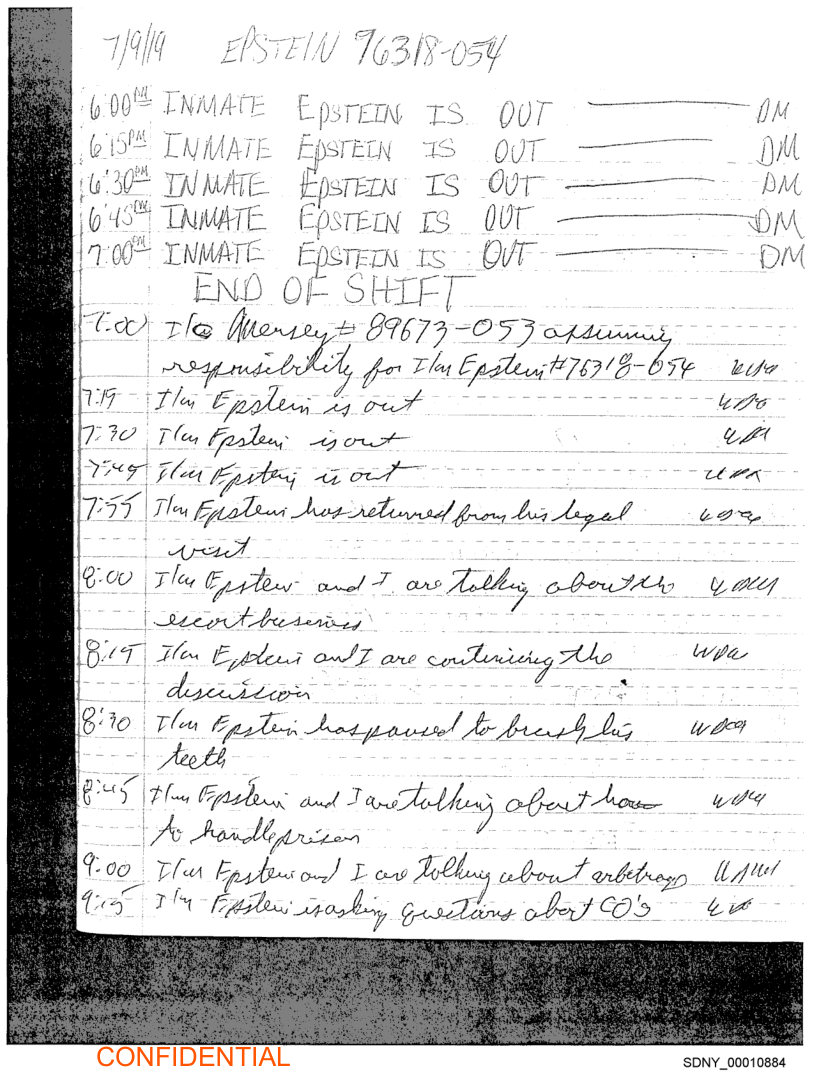 7/9/19 EPSTEIN 76318-054
6:00PM INMATE EPSTEIN IS OUT DM
6:15PM INMATE EPSTEIN IS OUT DM
6:30PM INMATE EPSTEIN IS OUT DM
6:45PM INMATE EPSTEIN IS OUT DM
7:00PM INMATE EPSTEIN IS OUT DM
END OF SHIFT
7:00 # 89673-053 assuming
responsibility for I/m Epstein #76318-054
7:15 I/m Epstein is out
7:30 I/m Epstein is out
7:45 I/m Epstein is out
7:55 I/m Epstein has returned from his legal
visit
8:00 I/m Epstein and I are talking about the
escort business
8:15 I/m Epstein and I are continuing the
discussion
8:30 I/m Epstein has paused to brush his
teeth
8:45 I/m Epstein and I are talking about how
to handle prison
9:00 I/m Epstein and I are talking about arbetrage
9:15 I/m Epstein is asking questions abort CO's
CONFIDENTIAL
SDNY_00010884